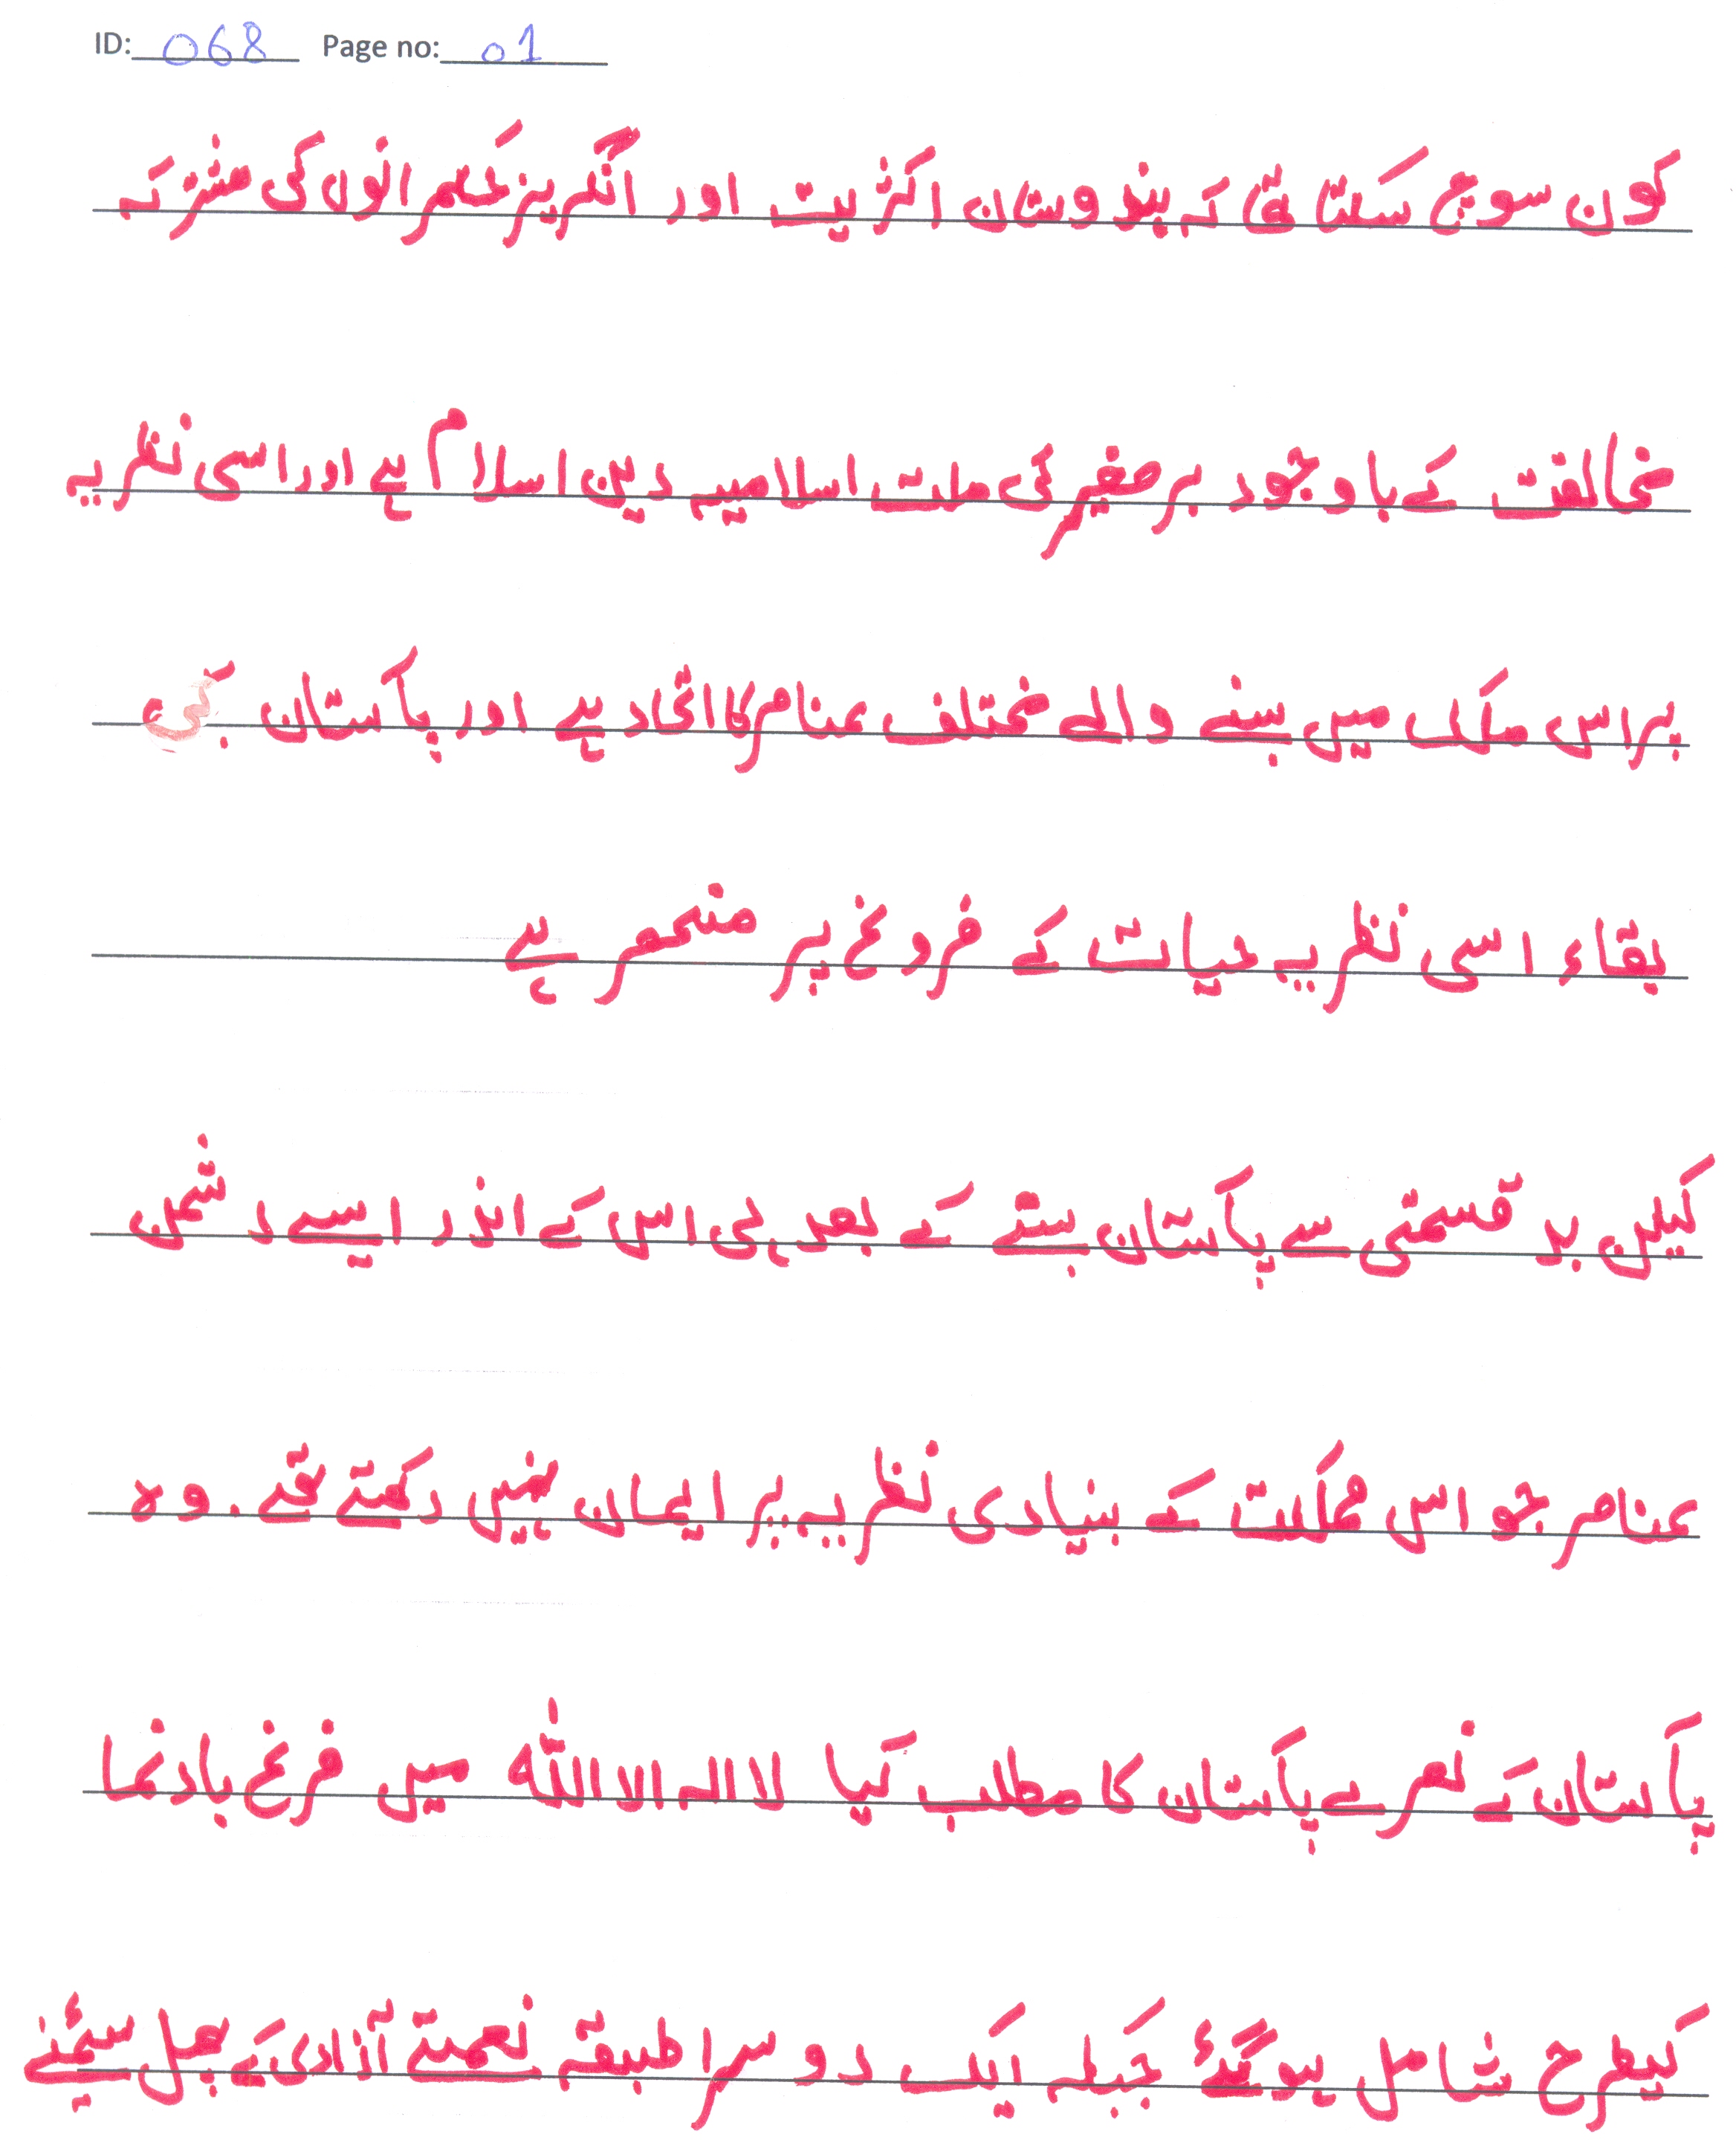 ID: 068 Page no: 01
کون سوچ سکتا تھا کہ ہندوستان اکثریت اور انگریز حکمرانوں کی مشترکہ
مخالفت کے باوجود برصغیر کی ملت اسلامیہ دین اسلام ہے اور اسی نظریہ
پر اس ملک میں بسنے والے مختلف عناصر کا اتحاد ہے اور پاکستان کی
بقاء اسی نظریہ حیات کے فروغ پر منحصر ہے
لیکن بد قسمتی سے پاکستان بنتے کے بعد ہی اس کے اندر ایسے دشمن
عناصر جو اس مملکت کے بنیادی نظریہ پر ایمان نہیں رکھتے تھے . وہ
پاکستان کے نعرے پاکستان کا مطلب کیا لا الہ الا اللہ میں فرغ بادنما
کیطرح شامل ہوگئے جبکہ ایک دوسرا طبقہ نعمتے آزادی کے پھل سمٹنے